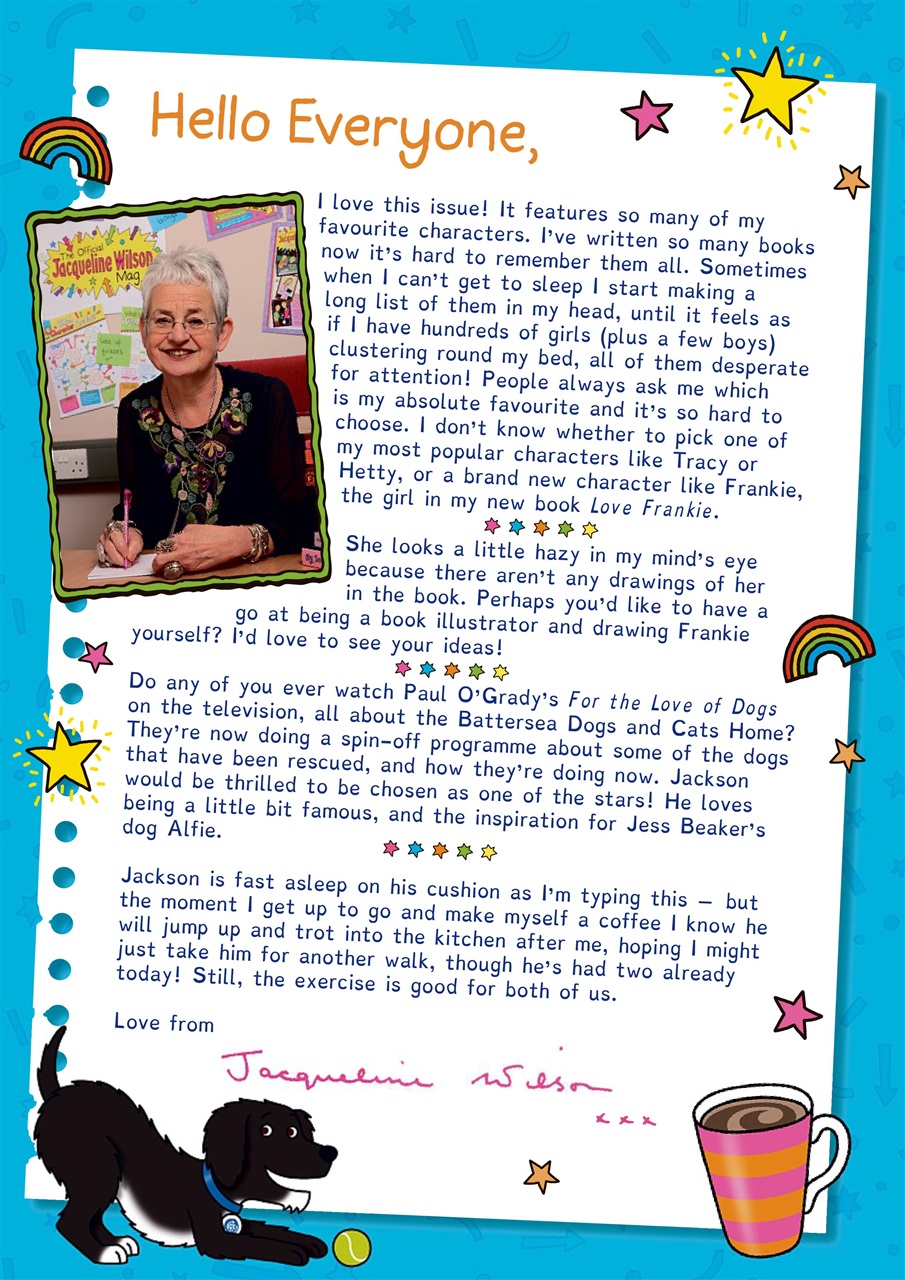 Hello Everyone,
The Official
Jacqueline Wilson
Mag
I love this issue! It features so many of my
favourite characters. I've written so many books
now it's hard to remember them all. Sometimes
when I can't get to sleep I start making a
long list of them in my head, until it feels as
if I have hundreds of girls (plus a few boys)
clustering round my bed, all of them desperate
for attention! People always ask me which
is my absolute favourite and it's so hard to
choose. I don't know whether to pick one of
my most popular characters like Tracy or
Hetty, or a brand new character like Frankie,
the girl in my new book Love Frankie.
She looks a little hazy in my mind's eye
because there aren't any drawings of her
in the book. Perhaps you'd like to have a
go at being a book illustrator and drawing Frankie
yourself? I'd love to see your ideas!
Do any of you ever watch Paul O'Grady's For the Love of Dogs
on the television, all about the Battersea Dogs and Cats Home?
They're now doing a spin-off programme about some of the dogs
that have been rescued, and how they're doing now. Jackson
would be thrilled to be chosen as one of the stars! He loves
being a little bit famous, and the inspiration for Jess Beaker's
dog Alfie.
Jackson is fast asleep on his cushion as I'm typing this – but
the moment I get up to go and make myself a coffee I know he
will jump up and trot into the kitchen after me, hoping I might
just take him for another walk, though he's had two already
today! Still, the exercise is good for both of us.
Love from
Jacqueline Wilson
x x x